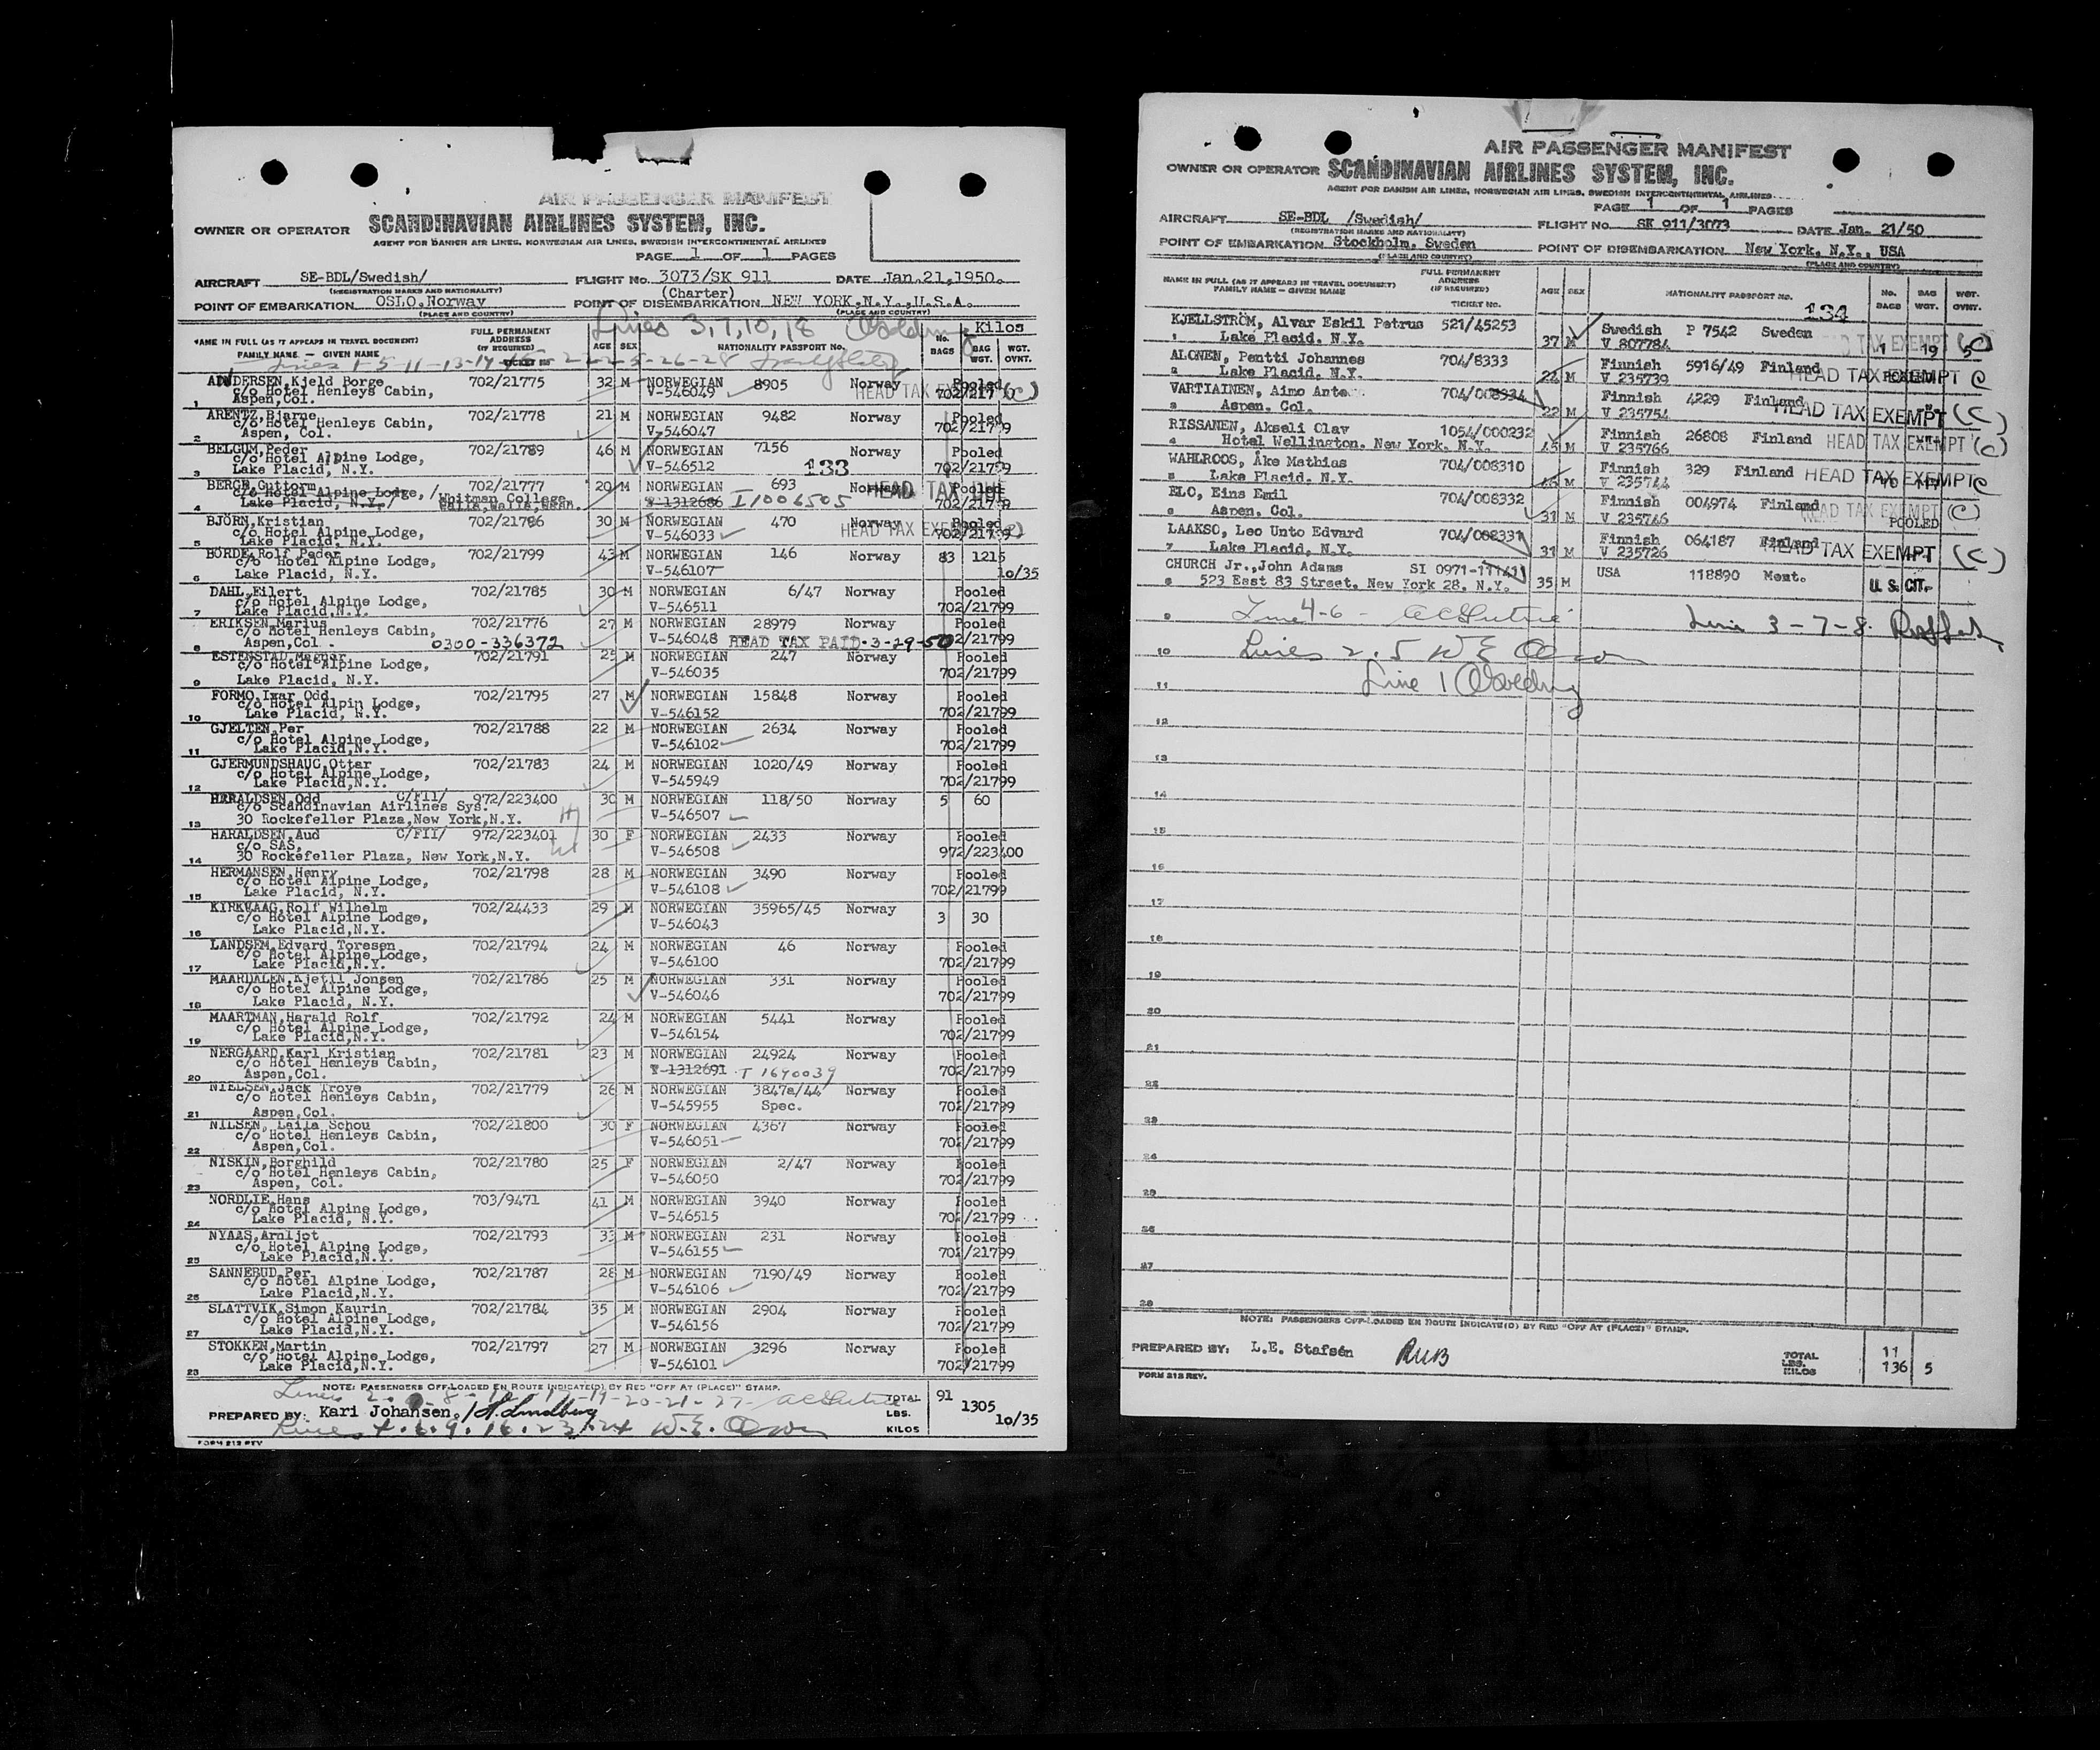 AIR PASSENGER MANIFEST
OWNER OR OPERATOR SCANDINAVIAN AIRLINES SYSTEM, INC.
AGENT FOR DANISH AIR LINES, NORWEGIAN AIR LINES, SWEDISH INTERCONTINENTAL AIRLINES
PAGE 1 OF 1 PAGES
AIRCRAFT SE-BDL/Swedish/ FLIGHT NO. 3073/SK 911 DATE Jan.21,1950.
(REGISTRATION MARKS AND NATIONALITY) (Charter)
POINT OF EMBARKATION OSLO,Norway POINT OF DISEMBARKATION NEW YORK,N.Y.,U.S.A.
(PLACE AND COUNTRY) (PLACE AND COUNTRY)
Lines 3,7,10,18 Kilos
NAME IN FULL (AS IT APPEARS IN TRAVEL DOCUMENT) FULL PERMANENT ADDRESS (IF REQUIRED) AGE SEX NATIONALITY PASSPORT No. No. BAGS BAG WGT. WGT. OVNT.
FAMILY NAME — GIVEN NAME TICKET NO
ANDERSEN,Kjeld Borge 702/21775 32 M NORWEGIAN 8905 Norway Pooled
c/o Hotel Henleys Cabin, V-546049 HEAD TAX EXEMPT (C)
1 Aspen,Col.
ARENTZ,Bjarne 702/21778 21 M NORWEGIAN 9482 Norway Pooled
c/o Hotel Henleys Cabin, V-546047 702/21799
2 Aspen, Col.
BELGUM,Peder 702/21789 46 M NORWEGIAN 7156 Norway Pooled
c/o Hotel Alpine Lodge, V-546512 133 702/21799
3 Lake Placid, N.Y.
BERGH,Guttorm 702/21777 20 M NORWEGIAN 693 Norway Pooled
c/o Hotel Alpine Lodge, / Whitman College, V-1312686 I 1006505 HEAD TAX DUE 702/21799
4 Lake Placid, N.Y./ Walla,Walla,Wash.
BJÖRN,Kristian 702/21786 30 M NORWEGIAN 470 Norway Pooled
c/o Hotel Alpine Lodge, V-546033 HEAD TAX EXEMPT 702/21799
5 Lake Placid, N.Y.
BÖRDE,Rolf Peder 702/21799 43 M NORWEGIAN 146 Norway 83 1215
c/o Hotel Alpine Lodge, V-546107
6 Lake Placid, N.Y. 10/35
DAHL,Eilert 702/21785 30 M NORWEGIAN 6/47 Norway Pooled
c/o Hotel Alpine Lodge, V-546511 702/21799
7 Lake Placid,N.Y.
ERIKSEN,Marius 702/21776 27 M NORWEGIAN 28979 Norway Pooled
c/o Hotel Henleys Cabin, V-546048 HEAD TAX PAID-3-29-50 702/21799
8 Aspen,Col. 0300-336372
ESTENSTAD,Magnar 702/21791 25 M NORWEGIAN 247 Norway Pooled
c/o Hotel Alpine Lodge, V-546035 702/21799
9 Lake Placid, N.Y.
FORMO,Ivar Odd 702/21795 27 M NORWEGIAN 15848 Norway Pooled
c/o Hotel Alpin Lodge, V-546152 702/21799
10 Lake Placid, N.Y.
GJELTEN,Per 702/21788 22 M NORWEGIAN 2634 Norway Pooled
c/o Hotel Alpine Lodge, V-546102 702/21799
11 Lake Placid,N.Y.
GJERMUNDSHAUG,Ottar 702/21783 24 M NORWEGIAN 1020/49 Norway Pooled
c/o Hotel Alpine Lodge, V-545949 702/21799
12 Lake Placid,N.Y.
HARALDSEN,Odd C/FII/ 972/223400 30 M NORWEGIAN 118/50 Norway 5 60
c/o Scandinavian Airlines Sys. V-546507
13 30 Rockefeller Plaza,New York,N.Y.
HARALDSEN,Aud C/FII/ 972/223401 30 F NORWEGIAN 2433 Norway Pooled
c/o SAS, V-546508 972/223400
14 30 Rockefeller Plaza, New York,N.Y.
HERMANSEN,Henry 702/21798 28 M NORWEGIAN 3490 Norway Pooled
c/o Hotel Alpine Lodge, V-546108 702/21799
15 Lake Placid, N.Y.
KIRKVAAG,Rolf Wilhelm 702/24433 29 M NORWEGIAN 35965/45 Norway 3 30
c/o Hotel Alpine Lodge, V-546043
16 Lake Placid,N.Y.
LANDSEM,Edvard Toresen 702/21794 24 M NORWEGIAN 46 Norway Pooled
c/o Hotel Alpine Lodge, V-546100 702/21799
17 Lake Placid,N.Y.
MAARDALEN,Kjetil Jonsen 702/21786 25 M NORWEGIAN 331 Norway Pooled
c/o Hotel Alpine Lodge, V-546046 702/21799
18 Lake Placid, N.Y.
MAARTMAN,Harald Rolf 702/21792 24 M NORWEGIAN 5441 Norway Pooled
c/o Hotel Alpine Lodge, V-546154 702/21799
19 Lake Placid,N.Y.
NERGAARD,Karl Kristian 702/21781 23 M NORWEGIAN 24924 Norway Pooled
c/o Hotel Henleys Cabin, V-1312691 T 1690039 702/21799
20 Aspen,Col.
NIELSEN,Jack Troye 702/21779 26 M NORWEGIAN 3847a/44 Norway Pooled
c/o Hotel Henleys Cabin, V-545955 Spec. 702/21799
21 Aspen,Col.
NILSEN, Laila Schou 702/21800 30 F NORWEGIAN 4367 Norway Pooled
c/o Hotel Henleys Cabin, V-546051 702/21799
22 Aspen,Col.
NISKIN,Borghild 702/21780 25 F NORWEGIAN 2/47 Norway Pooled
c/o Hotel Henleys Cabin, V-546050 702/21799
23 Aspen, Col.
NORDLIE,Hans 703/9471 41 M NORWEGIAN 3940 Norway Pooled
c/o Hotel Alpine Lodge, V-546515 702/21799
24 Lake Placid, N.Y.
NYAAS,Arnljot 702/21793 33 M NORWEGIAN 231 Norway Pooled
c/o Hotel Alpine Lodge, V-546155 702/21799
25 Lake Placid,N.Y.
SANNERUD,Per 702/21787 28 M NORWEGIAN 7190/49 Norway Pooled
c/o Hotel Alpine Lodge, V-546106 702/21799
26 Lake Placid,N.Y.
SLATTVIK,Simon Kaurin 702/21784 35 M NORWEGIAN 2904 Norway Pooled
c/o Hotel Alpine Lodge, V-546156 702/21799
27 Lake Placid,N.Y.
STOKKEN,Martin 702/21797 27 M NORWEGIAN 3296 Norway Pooled
c/o Hotel Alpine Lodge, V-546101 702/21799
28 Lake Placid,N.Y.
NOTE: PASSENGERS OFF-LOADED EN ROUTE INDICATE(D) BY RED "OFF AT (PLACE)" STAMP.
PREPARED BY: Kari Johansen. TOTAL LBS. KILOS 91 1305 10/35
Lines 4.6.9.16.23.24 W.E.
AIR PASSENGER MANIFEST
OWNER OR OPERATOR SCANDINAVIAN AIRLINES SYSTEM, INC.
AGENT FOR DANISH AIR LINES, NORWEGIAN AIR LINES, SWEDISH INTERCONTINENTAL AIRLINES
PAGE 1 OF 1 PAGES
AIRCRAFT SE-BDL /Swedish/ FLIGHT NO. SK 911/3073 DATE Jan. 21/50
(REGISTRATION MARKS AND NATIONALITY)
POINT OF EMBARKATION Stockholm, Sweden POINT OF DISEMBARKATION New York, N.Y., USA
(PLACE AND COUNTRY) (PLACE AND COUNTRY)
NAME IN FULL (AS IT APPEARS IN TRAVEL DOCUMENT) FULL PERMANENT ADDRESS (IF REQUIRED) AGE SEX NATIONALITY PASSPORT NO. No. BAGS BAG WGT. WGT. OVNT.
FAMILY NAME — GIVEN NAME TICKET NO. 134
KJELLSTRÖM, Alvar Eskil Petrus 521/45253 37 M Swedish P 7542 Sweden
1 Lake Placid, N.Y. V 807784 HEAD TAX EXEMPT (C) 1 19 5
ALONEN, Pentti Johannes 704/8333 Finnish 5916/49 Finland
2 Lake Placid, N.Y. 24 M V 235739 HEAD TAX EXEMPT C
VARTIAINEN, Aimo Ante 704/008934 Finnish 4229 Finland
3 Aspen, Col. 22 M V 235754 HEAD TAX EXEMPT (C)
RISSANEN, Akseli Olav 1054/000232 Finnish 26808 Finland HEAD TAX EXEMPT (C)
4 Hotel Wellington, New York, N.Y. 45 M V 235766
WAHLROOS, Åke Mathias 704/008310 Finnish 329 Finland HEAD TAX EXEMPT C
5 Lake Placid, N.Y. M V 235744
ELO, Eins Emil 704/008332 Finnish 004974 Finland HEAD TAX EXEMPT (C)
6 Aspen, Col. 31 M V 235746 POOLED
LAAKSO, Leo Unto Edvard 704/008331 Finnish 064187 Finland HEAD TAX EXEMPT (C)
7 Lake Placid, N.Y. 31 M V 235726
CHURCH Jr.,John Adams SI 0971-111411 USA 118890 Mont. U.S. CIT.
8 523 East 83 Street, New York 28, N.Y. 35 M
9 Line 4-6 - Line 3-7-8
10 Lines 2.5 W E
11 Line 1
12
13
14
15
16
17
18
19
20
21
22
23
24
25
26
27
28
NOTE: PASSENGERS OFF-LOADED EN ROUTE INDICATE(D) BY RED "OFF AT (PLACE)" STAMP.
PREPARED BY: L.E. Stafsén RUB TOTAL LBS. KILOS 11 136 5
FORM 212 REV.